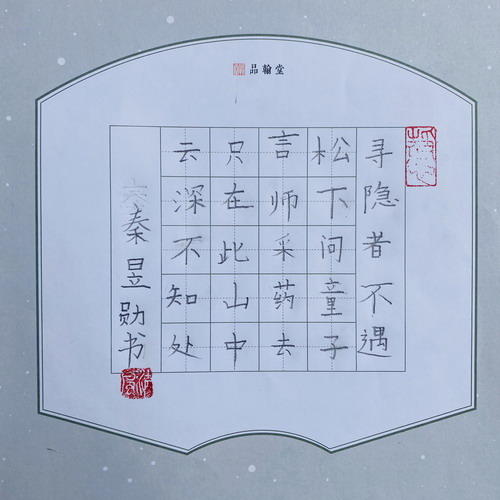 品翰堂
寻隐者不遇
松下问童子
言师采药去
只在此山中
云深不知处
秦昱勋书